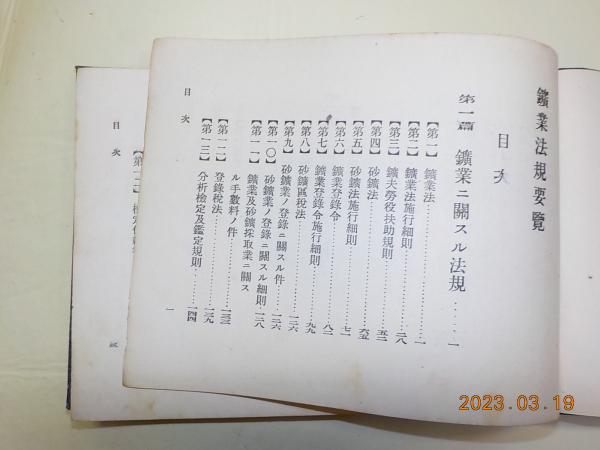 鑛業法規要覽
目次
第一篇 鑛業ニ關スル法規……一
【第一】 鑛業法……一
【第二】 鑛業法施行細則……二八
【第三】 鑛夫勞役扶助規則……五二
【第四】 砂鑛法……六五
【第五】 砂鑛法施行細則……七一
【第六】 鑛業登錄令……八二
【第七】 鑛業登錄令施行細則……九九
【第八】 砂鑛區稅法……一二六
【第九】 砂鑛業ノ登錄ニ關スル件……一二六
【第一〇】 砂鑛業ノ登錄ニ關スル細則……一二八
【第一一】 鑛業及砂鑛採取業ニ關ス
ル手數料ノ件……一三三
【第一二】 登錄稅法……一三九
【第一三】 分析檢定及鑑定規則……一四四
目次
一
目次
2023.03.19